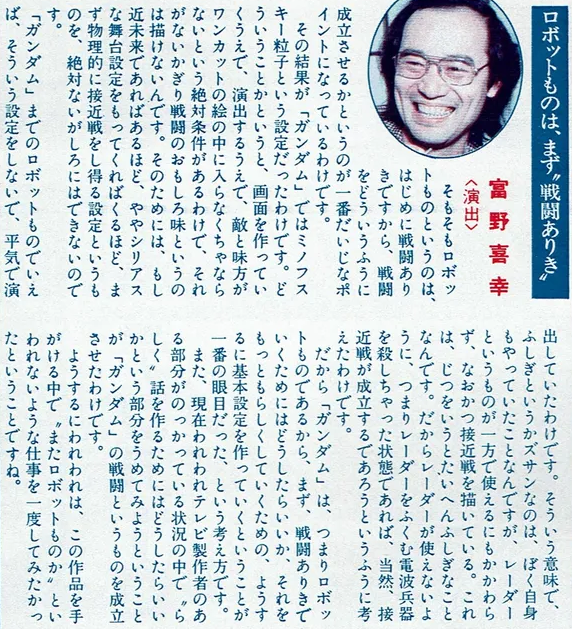 ロボットものは、まず〝戦闘ありき〟
富野喜幸
〈演出〉
そもそもロボッ
トものというのは、
はじめに戦闘あり
きですから、戦闘
をどういうふうに
成立させるかというのが一番だいじなポ
イントになっているわけです。
その結果が「ガンダム」ではミノフス
キー粒子という設定だったわけです。ど
ういうことかというと、画面を作ってい
くうえで、演出するうえで、敵と味方が
ワンカットの絵の中に入らなくちゃなら
ないという絶対条件があるわけで、それ
がないかぎり戦闘のおもしろ味というの
は描けないんです。そのためには、もし
近未来であればあるほど、ややシリアス
な舞台設定をもってくればくるほど、ま
ず物理的に接近戦をし得る設定というも
のを、絶対ないがしろにはできないので
す。
「ガンダム」までのロボットものでいえ
ば、そういう設定をしないで、平気で演
出していたわけです。そういう意味で、
ふしぎというかズサンなのは、ぼく自身
もやっていたことなんですが、レーダー
というものが一方で使えるにもかかわら
ず、なおかつ接近戦を描いている。これ
は、じつをいうとたいへんふしぎなこと
なんです。だからレーダーが使えないよ
うに、つまりレーダーをふくむ電波兵器
を殺しちゃった状態であれば、当然、接
近戦が成立するであろうというふうに考
えたわけです。
だから「ガンダム」は、つまりロボッ
トものであるから、まず、戦闘ありきで
いくためにはどうしたらいいか、それを
もっともらしくしていくための、ようす
るに基本設定を作っていくということが
一番の眼目だった、という考え方です。
また、現在われわれテレビ製作者のあ
る部分がのっかっている状況の中で〝ら
しく〟話を作るためにはどうしたらいい
かという部分をうめてみようということ
が「ガンダム」の戦闘というものを成立
させたわけです。
ようするにわれわれは、この作品を手
がける中で〝またロボットものか〟とい
われないような仕事を一度してみたかっ
たということですね。